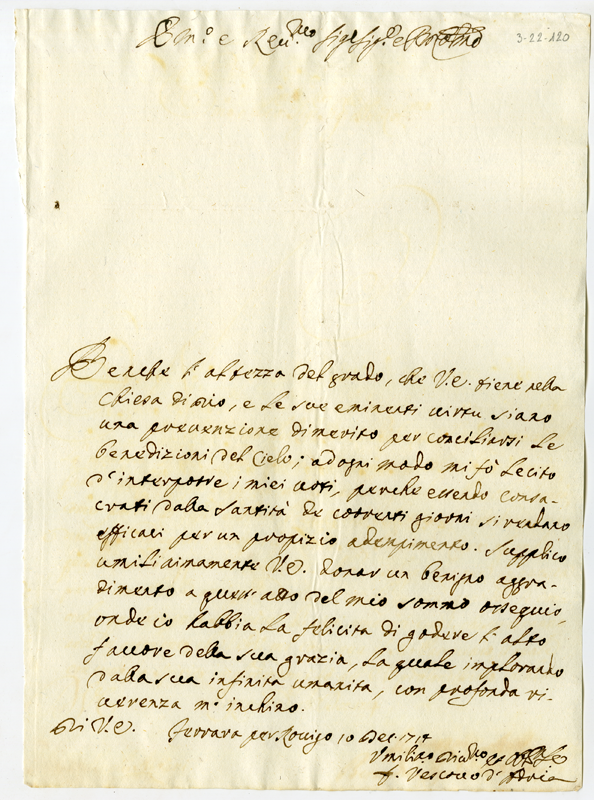 Em.º e Reu.mo Sig.r Sig.r e Pron
3-22-120
Benche l'altezza del grado, che V.E. tiene nella
Chiesa di Dio, e le sue eminenti uirtu siano
una preuenzione di merito per conciliarsi le
benedizioni del Cielo; ad ogni modo mi fò lecito
d'interporre i miei uoti, perche essendo consa-
crati dalla Santità de correnti giorni si rendano
efficaci per un propizio adempimento. Supplico
umilissimamente V.E. donar un benigno aggra-
dimento a quest'atto del mio sommo ossequio,
onde io habbia la felicità di godere l'alto
fauore della sua grazia, la quale implorando
dalla sua infinita umanita, con profonda ri-
uerenza m'inchino.
Di V.E. Ferrara per Rouigo 10 Dec. 1714
Vmiliss.o Diu.mo et
f. Vescouo d'Adria